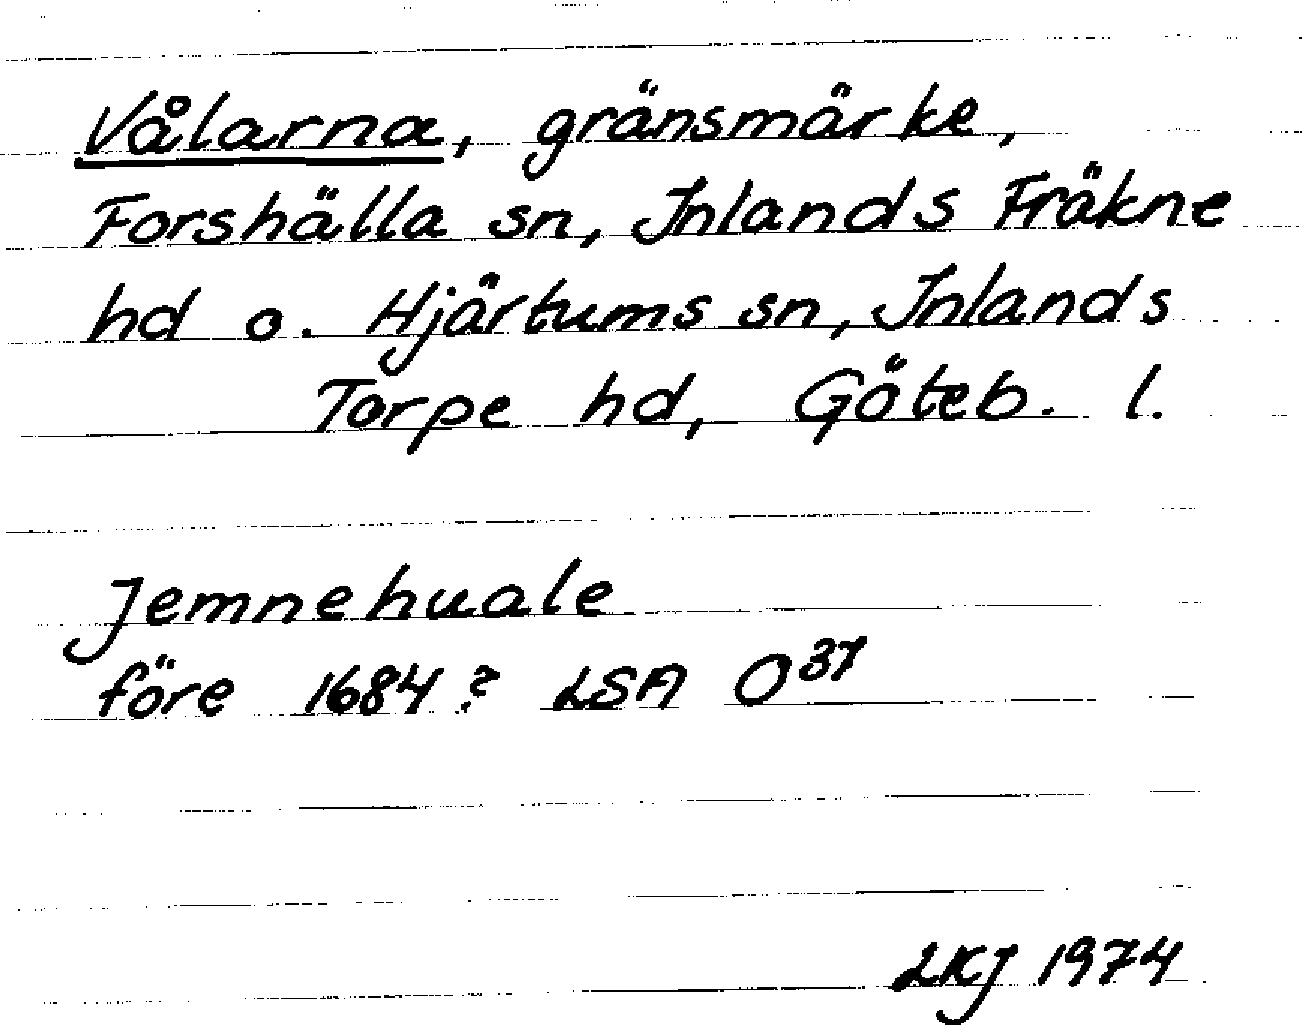 Vålarna, gränsmärke,
Forshälla sn, Inlands Fräkne
hd o. Hjärtums sn, Inlands
Torpe hd, Göteb. l.
Jemnehuale
före 1684? LSA O³⁷
LKJ 1974